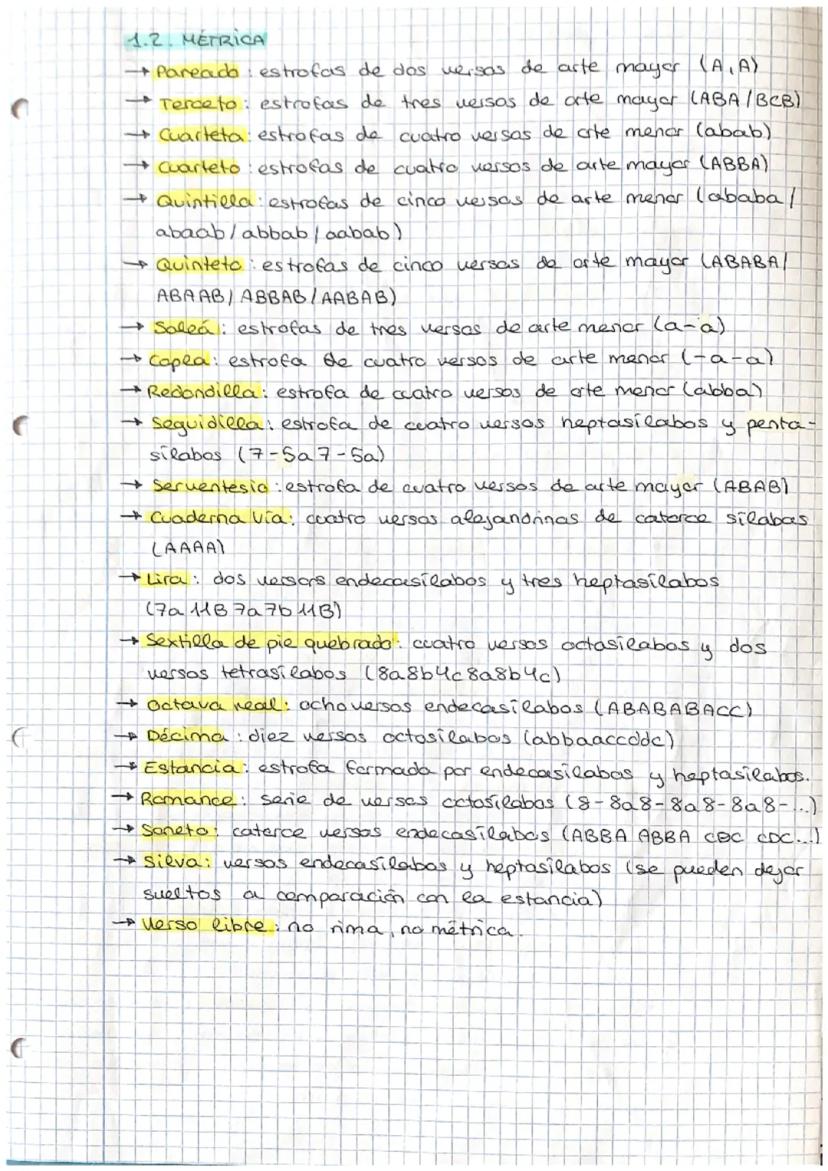 1.2. MÉTRICA
→ Pareado: estrofas de dos versos de arte mayor (A,A)
→ Terceto: estrofas de tres versos de arte mayor (ABA/BCB)
→ Cuarteta: estrofas de cuatro versos de arte menor (abab)
→ Cuarteto: estrofas de cuatro versos de arte mayor (ABBA)
→ Quintilla: estrofas de cinco versos de arte menor (ababa/
abaab/abbab/aabab)
→ Quinteto: estrofas de cinco versos de arte mayor (ABABA/
ABAAB/ABBAB/AABAB)
→ Soleá: estrofas de tres versos de arte menor (a-a)
→ Copla: estrofa de cuatro versos de arte menor (-a-a)
→ Redondilla: estrofa de cuatro versos de arte menor (abba)
→ Seguidilla: estrofa de cuatro versos heptasílabos y penta-
sílabos (7-5a7-5a)
→ Serventesio: estrofa de cuatro versos de arte mayor (ABAB)
→ Cuaderna Vía: cuatro versos alejandrinos de catorce sílabas
(AAAA)
→ Lira: dos versors endecasílabos y tres heptasílabos
(7a 11B 7a 7b 11B)
→ Sextilla de pie quebrado: cuatro versos octasílabos y dos
versos tetrasílabos (8a8b4c8a8b4c)
→ Octava real: ocho versos endecasílabos (ABABABACC)
→ Décima: diez versos octosílabos (abbaaccddc)
→ Estancia: estrofa formada por endecasílabos y heptasílabos.
→ Romance: serie de versos octosílabos (8-8a8-8a8-8a8-...)
→ Soneto: catorce versos endecasílabos (ABBA ABBA CDC CDC...)
→ Silva: versos endecasílabos y heptasílabos (se pueden dejar
sueltos a comparación con la estancia)
→ Verso libre: no rima, no métrica.